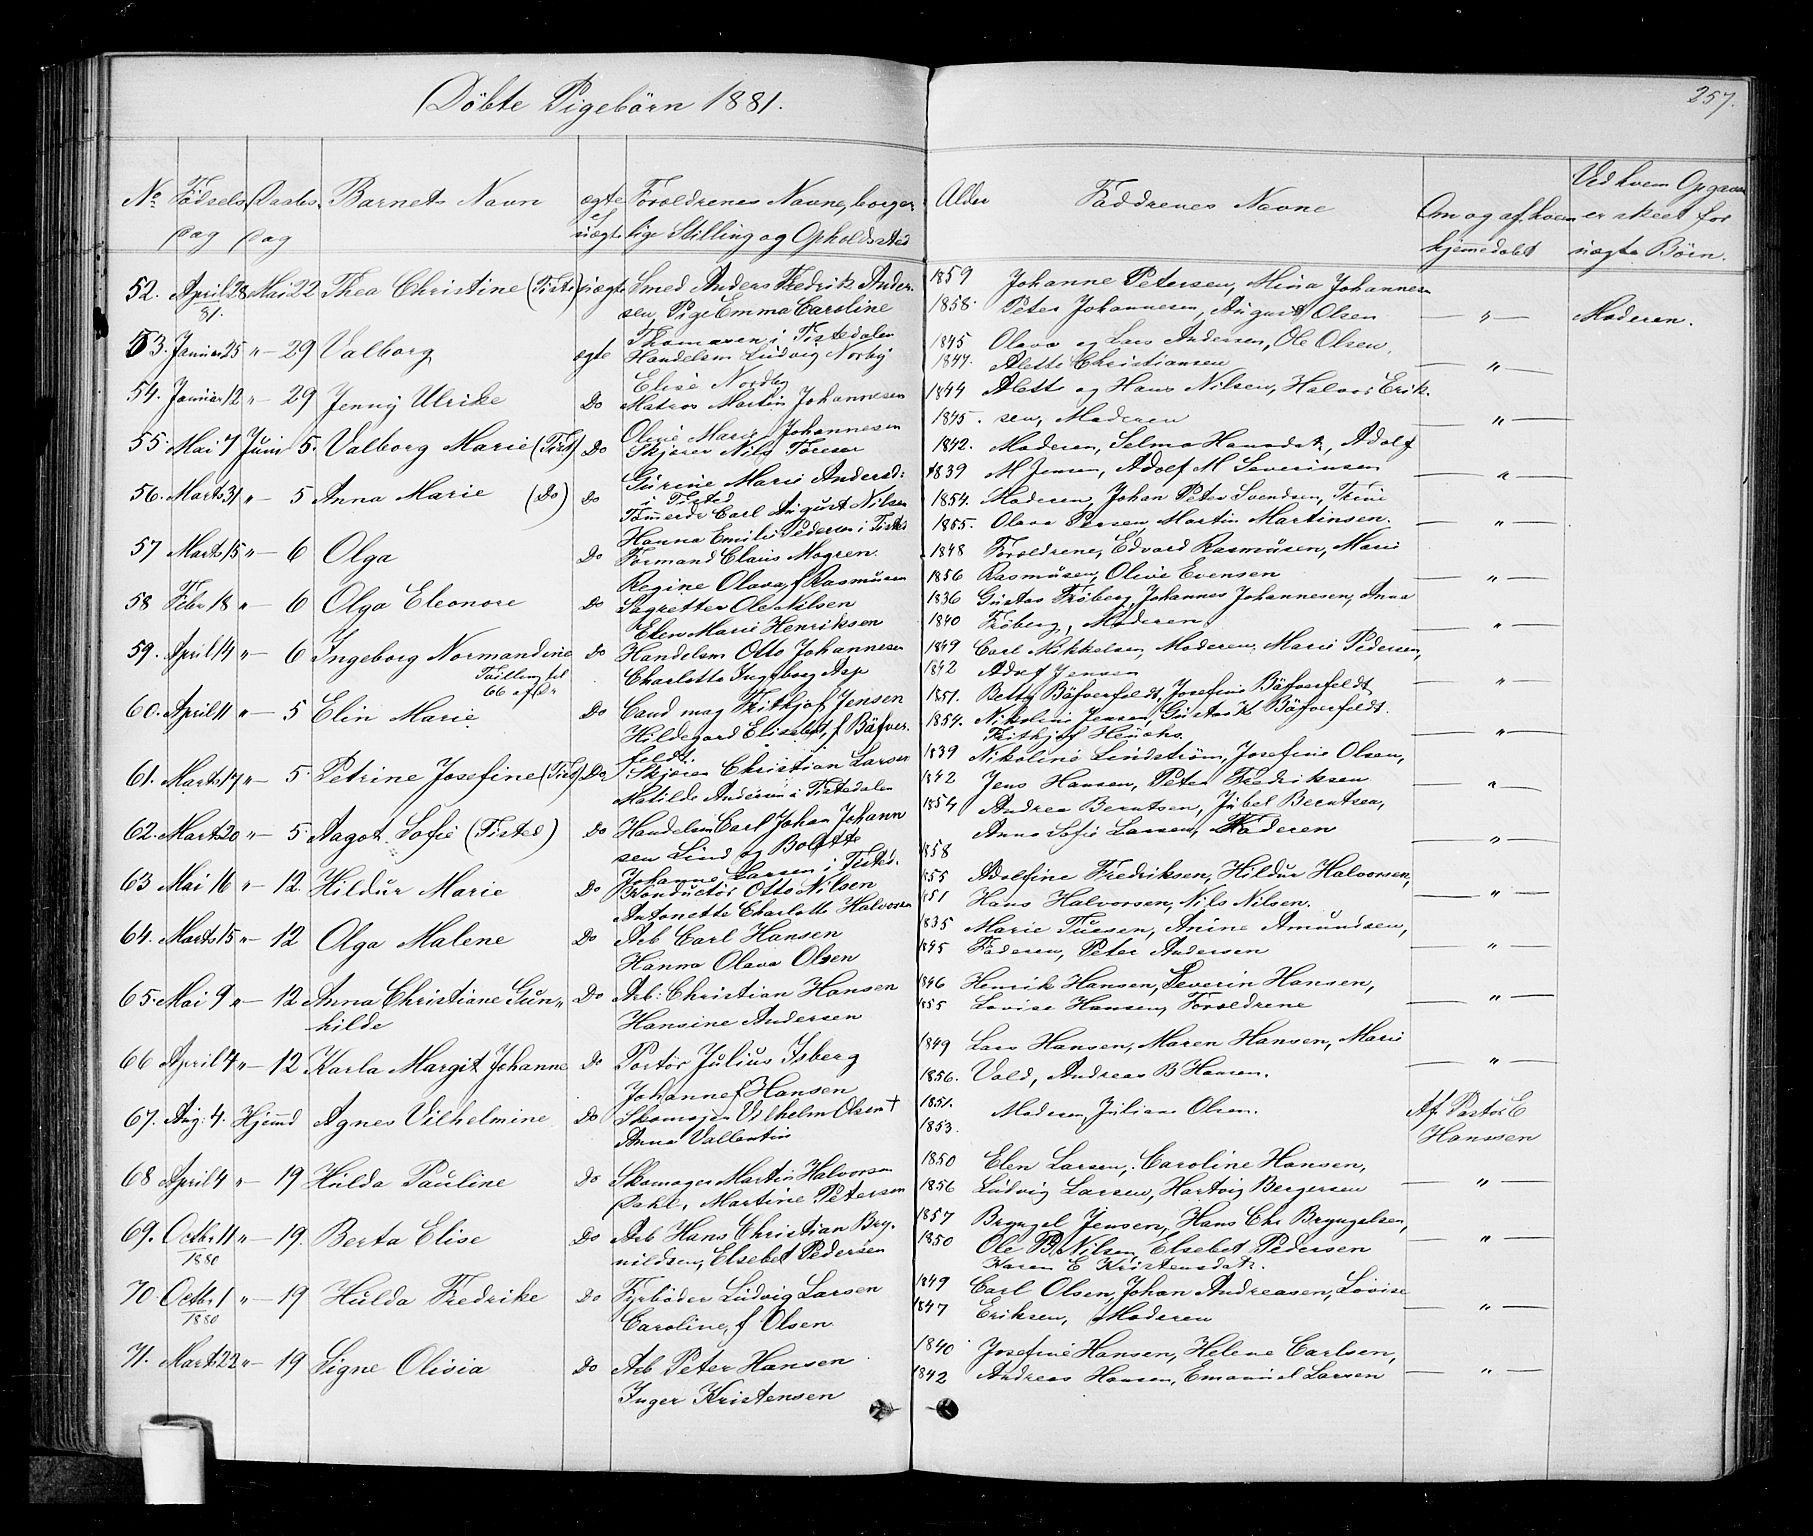 Döbte Pigebörn 1881.
257.
No Födsels Daabs Barnets Navn ægte Forældrenes Navne, borger Alder Faddrenes Navne Om og af hvem Ved hvem Opgaven
Dag Dag uægte lige Stilling og Opholdssted hjemmedöbt er skeet for
uægte Börn.
52. April 28 Mai 22 Thea Christine (Tisted) uægte Smed Anders Fredrik Ander- 1859 Johanne Petersen, Mina Johannesen
81. sen, Pige Emma Caroline 1858. Peter Johannesen, August Olsen — " — Moderen.
Thomasen i Tistedalen
53. Januar 25 " — 29 Valborg ægte Handelsm Ludvig Norby 1845 Olava og Lars Andersen, Ole Olsen,
Elise Nordby 1847. Alette Christiansen — " —
54. Januar 12 " — 29 Jenny Ulrike Do Matros Martin Johannesen 1844 Alette og Hans Nilsen, Halvor Erik-
Olive Marie Johannesen 1845. sen, Moderen — " —
55. Mai 7 Juni 5. Valborg Marie (Tisted) Do Skjærer Nils Toresen 1842. Moderen, Selma Hansdat, Adolf
Gurine Marie Andersd: 1839 M Jensen, Adolf M Severinsen — " —
i Tisted
56. Marts 31 " — 5 Anna Marie (Do) Do Tömmerdr Carl August Nilsen 1854. Moderen, Johan Peter Svendsen, Trine
Hanna Emilie Pedersen i Tisted 1855. Olava Persen, Martin Martinsen. — " —
57 Marts 15 " — 6 Olga Do Formand Claus Mogren 1848 Forældrene, Edvard Rasmusen, Marie
Regine Olava, f Rasmusen 1856 Rasmusen, Olive Evensen — " —
58 Febr 18 " — 6 Olga Eleonore Do Sagretter Ole Nilsen 1836 Gustav Fröberg, Johannes Johannesen, Anna
Elen Marie Henriksen 1840 Fröberg, Moderen — " —
59. April 14 " — 6 Ingeborg Normandine Do Handelsm Otto Johannesen 1849 Carl Mikkelsen, Moderen, Marie Pedersen,
Charlotte Ingeborg Asp 1842 Adolf Jensen — " —
60. April 11 " — 5 Elin Marie Do Cand mag Frithjof Jensen 1851. Betty Bäfverfeldt, Josefine Bäfverfeldt
Hildegard Elisabet, f Bäfver- 1854. Nikoline Jensen, Gustav K Bäfverfeldt.
feldt. Frithjof Heuchs. — " —
61. Marts 17 " — 5 Petrine Josefine (Tisted) Do Skjærer Christian Larsen 1839 Nikoline Lindström, Josefine Olsen,
Matilde Andersen i Tistedalen 1842 Jens Hansen, Peter Fredriksen — " —
62. Marts 20 " — 5 Aagot Sofie (Tisted) Do Handelsm Carl Johan Johann 1854 Andrea Berntsen, Jubel Berntsen,
sen Lind og Bolette Anna Sofie Larsen, Moderen
Johanne Larsen i Tisted. 1858 — " —
63 Mai 16 " — 12. Hildur Marie Do Konductör Otto Nilsen 1855 Adolfine Fredriksen, Hildur Halvorsen,
Antonette Charlotte Halvorsen 1851 Hans Halvorsen, Nils Nilsen. — " —
64. Marts 15 " — 12 Olga Malene Do Arb Carl Hansen 1835 Marie Tuesen, Anine Amundsen,
Hanna Olava Olsen 1845 Faderen, Peter Andersen — " —
65. Mai 9 " — 12 Anna Christiane Gun- Do Arb: Christian Hansen 1846 Henrik Hansen, Severin Hansen,
hilde Hansine Andersen 1855 Lovise Hansen, Forældrene — " —
66 April 4 " — 12 Karla Margit Johanne Do Portör Julius Isberg 1849 Lars Hansen, Maren Hansen, Marie
Johanne f Hansen 1856. Vold, Andreas B Hansen. — " —
67. Aug. 4. Hjemmd Agnes Vilhelmine Do Skomager Vilhelm Olsen † 1851. Moderen, Julian Olsen. Af Pastor E
Anna Vallentin 1853. Hanssen
68 April 4 " — 19 Hulda Pauline Do Skomager Martin Halvorsen 1850 Elen Larsen, Caroline Hansen,
Dahl, Martine Petersen 1856 Ludvig Larsen, Hartvig Bergersen — " —
69. Octbr 11 " — 19. Berta Elise Do Arb Hans Christian Bry- 1857 Bryngel Jensen, Hans Chr Bryngelsen,
1880 nildsen, Elsebet Pedersen 1850 Ole B Nilsen, Elsebet Pedersen — " —
Karen E Kristensdat.
70. Octbr 1 " — 19 Hulda Fredrike Do Fyrböder Ludvig Larsen 1849 Carl Olsen, Johan Andreasen, Lovise
1880 Caroline, f Olsen 1847 Eriksen, Moderen — " —
71. Marts 22 " — 19 Signe Olivia Do Arb Peter Hansen 1840 Josefine Hansen, Helene Carlsen,
Inger Kristensen 1842 Andreas Hansen, Emanuel Larsen — " —